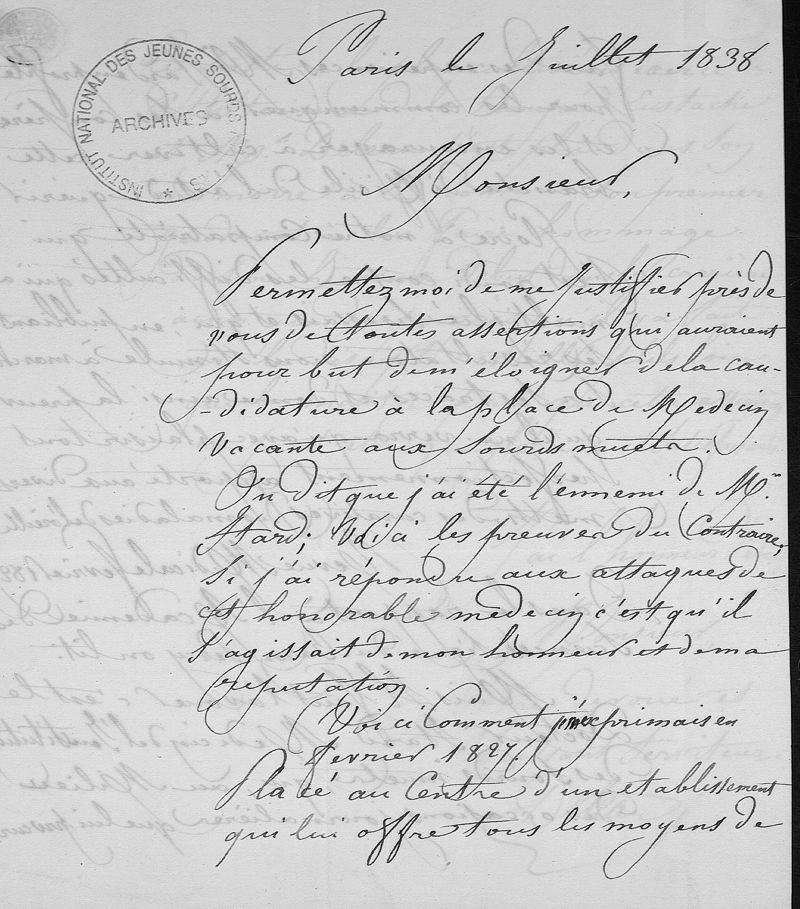 INSTITUT NATIONAL DES JEUNES SOURDS
ARCHIVES
Paris le Juillet 1838
Monsieur,
Permettez moi de me justifier près de
vous de toutes assertions qui auraient
pour but de m'éloigner de la can-
-didature à la place de Medecin
vacante aux Sourds muets.
On dit que j'ai été l'ennemi de Mr.
Itard; Voici les preuves du Contraire,
Si j'ai répondu aux attaques de
cet honorable medecin c'est qu'il
s'agissait de mon honneur et de ma
reputation.
(Voici Comment j'exprimais en
fevrier 1827)
Placé au Centre d'un etablissement
qui lui offre tous les moyens de